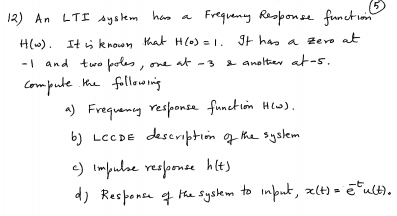 5
12) An LTI system has a Frequency Response function
H(ω). It is known that H(0) = 1. It has a zero at
-1 and two poles, one at -3 & another at -5.
Compute the following
a) Frequency response function H(ω).
b) LCCDE description of the system
c) Impulse response h(t)
d) Response of the system to input, x(t) = e⁻ᵗu(t).